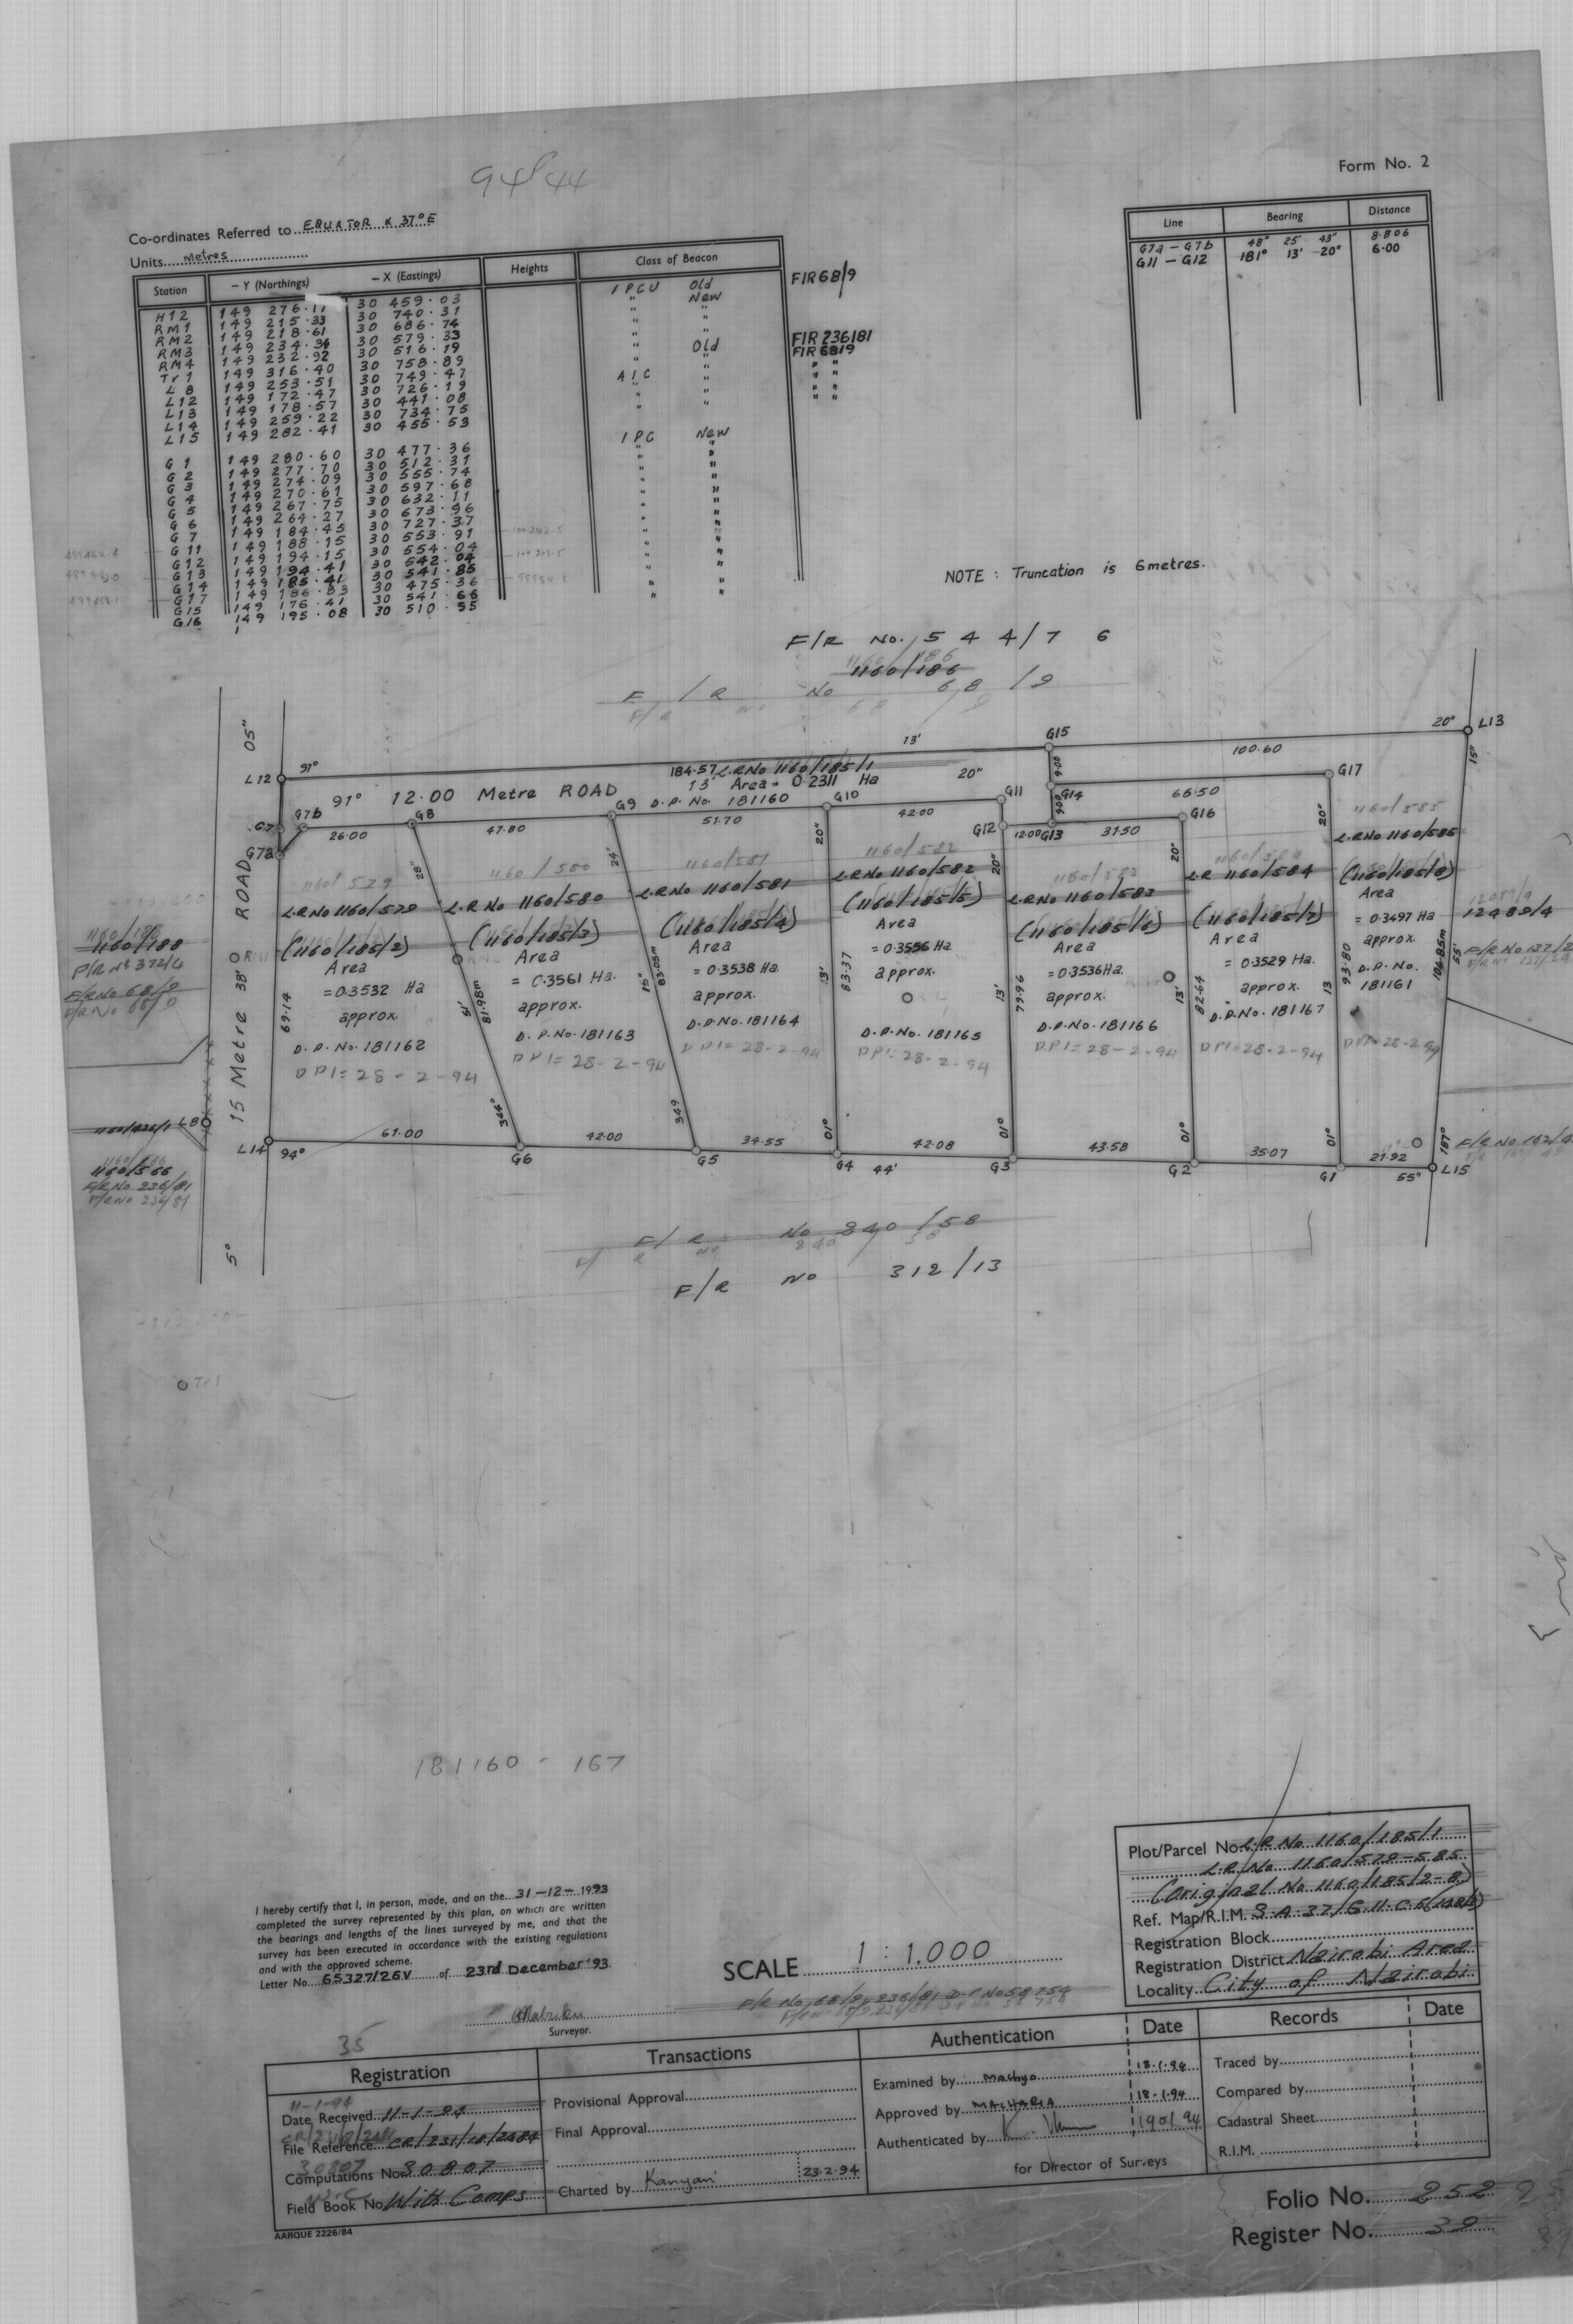 94/44
Form No. 2
Co-ordinates Referred to EQUATOR & 37°E
Units Metres
Station
— Y (Northings)
— X (Eastings)
Heights
Class of Beacon
H12 149 276.11 30 459.03 IPCU Old F/R 68/9
RM1 149 215.33 30 740.31 " New
RM2 149 218.61 30 686.74 " "
RM3 149 234.34 30 579.33 " "
RM4 149 232.92 30 516.19 " "
Tr 1 149 316.40 30 758.89 " Old F/R 236/81
L 8 149 253.51 30 749.47 " " F/R 68/9
L12 149 172.47 30 726.19 A I C " " "
L13 149 178.57 30 441.08 " " " "
L14 149 259.22 30 734.75 " " " "
L15 149 282.41 30 455.53
G 1 149 280.60 30 477.36 IPC New
G 2 149 277.70 30 512.31 " "
G 3 149 274.09 30 555.74 " "
G 4 149 270.61 30 597.68 " "
G 5 149 267.75 30 632.11 " "
G 6 149 264.27 30 673.96 " "
G 7 149 184.45 30 727.37 " "
G 11 149 188.15 30 553.91 " "
G12 149 194.15 30 554.04 " "
G13 149 194.41 30 542.04 " "
G14 149 185.41 30 541.85 " "
G17 149 186.83 30 475.36 " "
G15 149 176.41 30 541.66 " "
G16 149 195.08 30 510.95 " "
Line
Bearing
Distance
G7a — G7b 48° 25' 43" 8.806
G11 — G12 181° 13' 20" 6.00
NOTE : Truncation is 6metres.
F/R No. 544/76
1160/186
F/R No 68/9
L12 91° 13' 20" L13
184.57
G15
100.60
L.R No 1160/185/1
13' Area = 0.2311 Ha 20"
91° 12.00 Metre ROAD
D.P. No. 181160
G7 G7b G8 G9 G10 G11 G14 G17
G7a G12 G13 G16
26.00 47.80 51.70 42.00 12.00 31.50 66.50
9.00
9.00
15 Metre ROAD
5° 38' 05"
L.R No 1160/579
(1160/185/2)
Area
= 0.3532 Ha
approx.
D.P. No. 181162
DP1= 28-2-94
L.R No 1160/580
(1160/185/3)
Area
= 0.3561 Ha.
approx.
D.P. No. 181163
DP1= 28-2-94
L.R No 1160/581
(1160/185/4)
Area
= 0.3538 Ha.
approx.
D.P. No. 181164
DP1= 28-2-94
L.R No 1160/582
(1160/185/5)
Area
= 0.3556 Ha.
approx.
D.P. No. 181165
DP1= 28-2-94
L.R No 1160/583
(1160/185/6)
Area
= 0.3536 Ha.
approx.
D.P. No. 181166
DP1= 28-2-94
L.R 1160/584
(1160/185/7)
Area
= 0.3529 Ha.
approx.
D.P. No. 181167
DP1= 28-2-94
L.R No 1160/585
(1160/185/8)
Area
= 0.3497 Ha
approx.
D.P. No.
181161
DP1= 28-2-94
69.14
344° 51' 28" 81.98m
349 15" 24' 83.05m
01° 13' 20" 83.37
01° 13' 20" 79.96
01° 13' 20" 82.64
01° 13 20" 93.80
187° 55' 15" 106.85m
1160/188
F/R No 372/4
F/R No 68/9
L8
1160/566
F/R No 236/81
12489/4
L14 94° G6 G5 G4 44' G3 G2 G1 55" L15
61.00 42.00 34.55 42.08 43.58 35.07 21.92
F/R No 240/58
F/R No 312/13
Tr1
181160 - 167
I hereby certify that I, in person, made, and on the 31-12-1993
completed the survey represented by this plan, on which are written
the bearings and lengths of the lines surveyed by me, and that the
survey has been executed in accordance with the existing regulations
and with the approved scheme.
Letter No. 65327/26V of 23rd December '93
Surveyor.
SCALE 1 : 1,000
F/R No 68/9, 236/81 D.P No 59754
Plot/Parcel No. L.R No 1160/185/1
L.R. No 1160/579-585
(Original No 1160/185/2-8)
Ref. Map/R.I.M. S.A. 37/G.11.C.6
Registration Block
Registration District Nairobi Area
Locality City of Nairobi
35
Registration
Date Received 11-1-94
File Reference
Computations No. 30807
Field Book No. With Comps
AARQUE 2226/84
Transactions
Provisional Approval
Final Approval
Charted by Kanyari 23.2.94
Authentication
Date
Examined by Machyo 18.1.94
Approved by MACHARIA 18.1.94
Authenticated by
for Director of Surveys
Records
Date
Traced by
Compared by
Cadastral Sheet
R.I.M.
Folio No. 252
Register No. 39